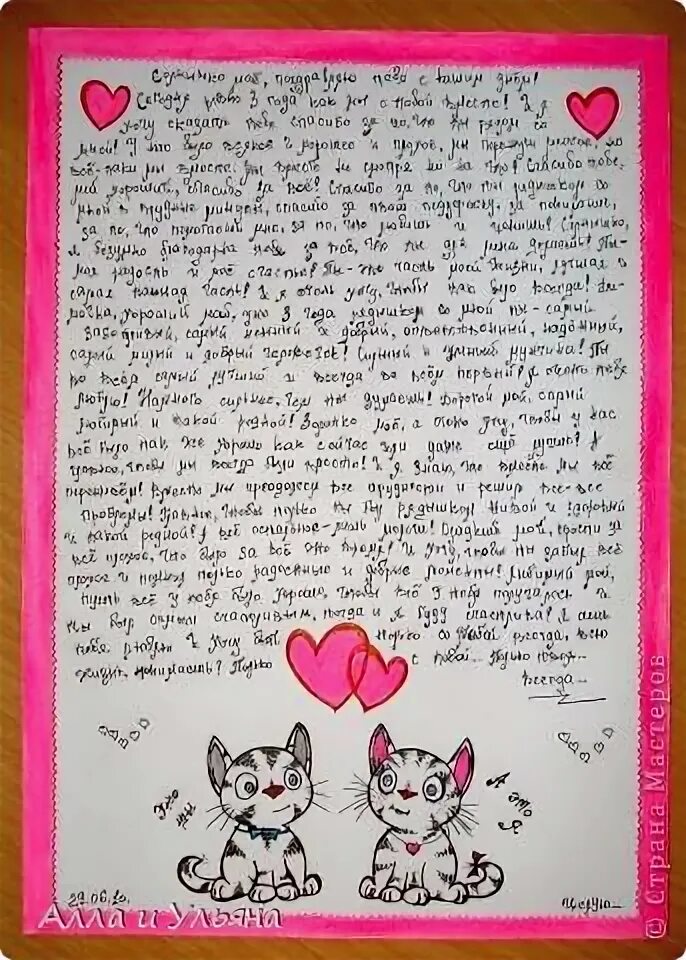 Солнышко моё, поздравляю тебя с нашим днём!
Сегодня ровно 3 года как мы с тобой вместе! И я
хочу сказать тебе спасибо за то, что ты рядом со
мной! У нас было всякое и хорошего и плохого, мы но
всё-таки мы вместе. Мы вместе не смотря ни на что! Спасибо тебе,
мой хороший, спасибо за всё! Спасибо за то, что ты рядышком со
мной в трудные минуты, спасибо за твою поддержку, за понимание,
за то, что помогаешь мне, за то, что любишь и ценишь! Солнышко,
я безумно благодарна тебе за всё, что ты для меня делаешь! Ты-
моя радость и моё счастье! Ты-же часть моей жизни, лучшая и
самая важная часть! И я очень хочу, чтобы так было всегда!
хороший мой, уже 3 года рядышком со мной ты-самый
заботливый, самый нежный и добрый, ответственный, надёжный,
самый милый и добрый человечек! Сильный и умный мужчина! Ты
во всём самый лучший и всегда во всём первый! Я очень тебя
люблю! Намного сильнее, чем ты думаешь! Дорогой мой, самый
любимый и такой родной! моё, я очень хочу, чтобы у нас
всё было так же хорошо как сейчас или даже ещё лучше! Я
чтобы мы всегда были вместе! И я знаю, что вместе мы всё
переживём! Вместе мы преодолеем все трудности и решим все-все
проблемы! чтобы только ты был рядышком живой и здоровый
и такой родной! А всё остальное- мелочи! Сладкий мой, прости за
всё плохое, что было за всё это время! И хочу, чтобы ты забыл всё
плохое и помнил только радостные и добрые моменты! Любимый мой,
пусть всё у тебя будет хорошо, чтобы всё у тебя получалось и
ты был самым счастливым, тогда и я буду счастлива! Я очень
тебя люблю и хочу быть только с тобой всегда, всю
жизнь, понимаешь? Только с тобой... Только твоя...
Всегда...
Это
ты
А это
я
29.06.12.
Целую...
Алла и Ульяна
© Страна Мастеров